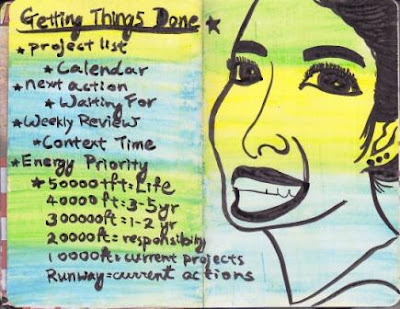 Getting Things Done
★project list
★Calendar
★next action
★Waiting For
★Weekly Review
★Context Time
★Energy Priority
★50000+ft=Life
40000ft=3-5yr
300000ft=1-2 yr
20000ft=responsibility
10000ft=current projects
Runway=current actions